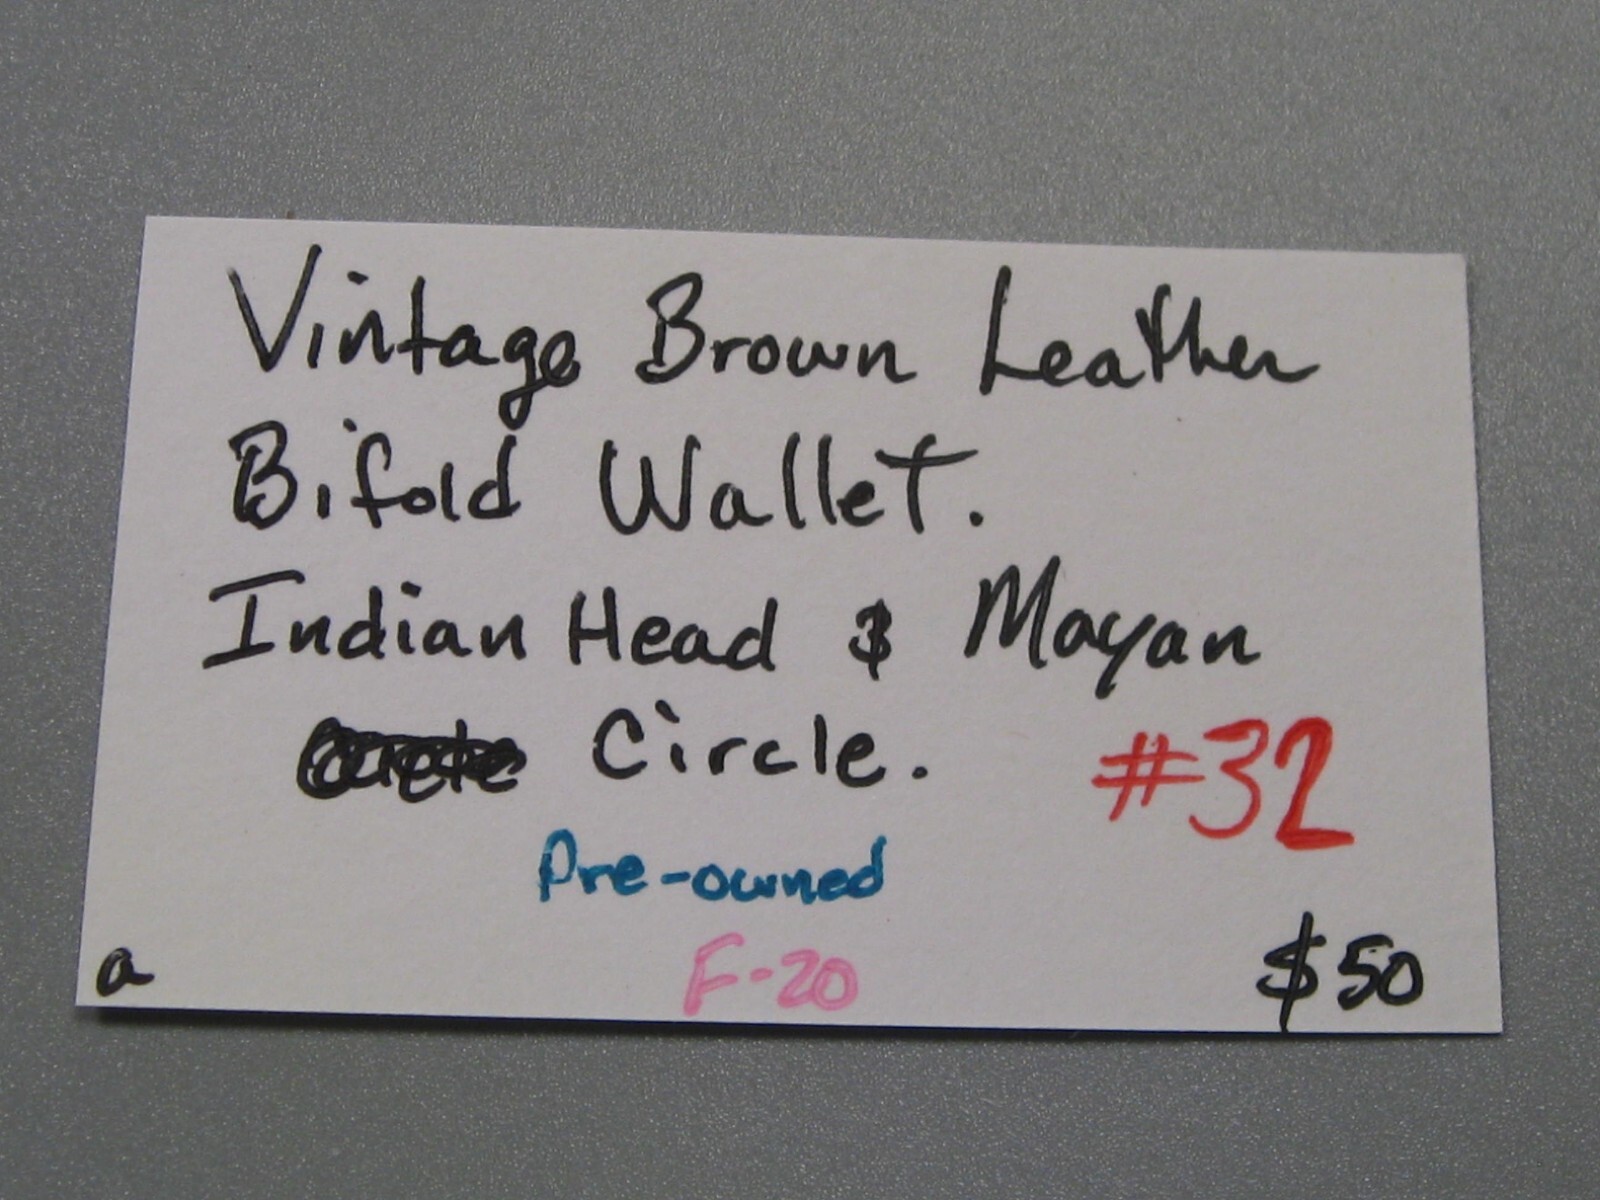 Vintage Brown Leather
Bifold Wallet.
Indian Head & Mayan
Circle.
#32
Pre-owned
a
F-20
$50